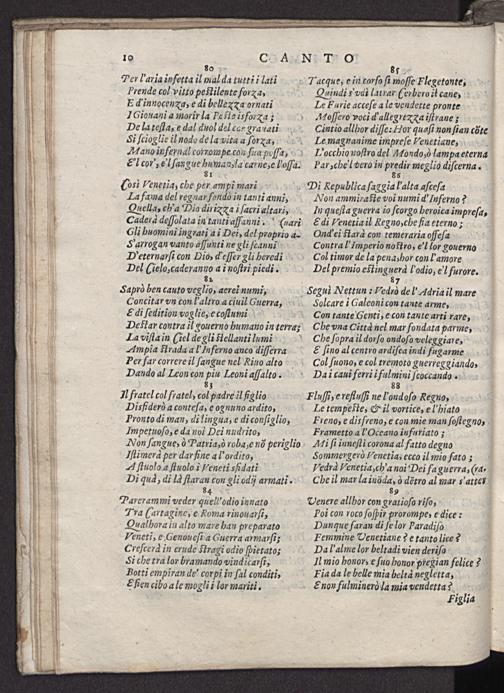 10 CANTO
80
Per l'aria infetta il mal da tutti i lati
Prende col vitto pestilente forza,
E d'innocenza, e di bellezza ornati
I Giouani a morir la Peste isforza ;
De la testa, e dal duol del cor grauati
Si scioglie il nodo de la vita a forza,
Mano infernal corrompe con sua possa,
E'l cor', e'l sangue human, la carne, e l'ossa.
81
Così Venetia, che per ampi mari
La fama del regnar fondò in tanti anni,
Quella, ch'a Dio dirizza i sacri altari,
Caderà dessolata in tanti affanni. (uari
Gli huomini ingrati a i Dei, del proprio a-
S'arrogan vanto assunti ne gli scanni
D'eternarsi con Dio, d'esser gli heredi
Del Cielo, caderanno a i nostri piedi.
82
Saprò ben cauto veglio, aerei numi,
Concitar vn con l'altro a ciuil Guerra,
E di sedition voglie, e costumi
Destar contra il gouerno humano in terra;
La vista in Ciel de gli stellanti lumi
Ampia strada a l'Inferno anco disserra
Per far correre il sangue nel Riuo alto
Dando al Leon con piu Leoni assalto.
83
Il fratel col fratel, col padre il figlio
Disfiderò a contesa, e ognuno ardito,
Pronto di man, di lingua, e di consiglio,
Impetuoso, e da noi Dei nudrito,
Non sangue, ò Patria, ò roba, e nō periglio
Istimerà per dar fine a l'ordito,
A stuolo a stuolo i Veneti sfidati
Di quà, di là staran con gli odij armati.
84
Parerammi veder quell'odio innato
Tra Cartagine, e Roma rinouarsi,
Qualhora in alto mare han preparato
Veneti, e Genouesi a Guerra armarsi;
Crescerà in crude stragi odio spietato;
Si che tra lor bramando vindicarsi,
Botti empiran de' corpi in sal conditi,
E sien cibo a le mogli i lor mariti.
85
Tacque, e in corso si mosse Flegetonte,
Quindi s'vdì latrar Cerbero il cane,
Le Furie accese a le vendette pronte
Mossero voci d'allegrezza istrane;
Cintio allhor disse: Hor quasi non sian cōte
Le magnanime imprese Venetiane,
L'occhio nostro del Mondo, ò lampa eterna
Par, che'l vero in predir meglio discerna.
86
Di Republica saggia l'alta ascesa
Non ammiraste voi numi d'Inferno ?
In questa guerra io scorgo heroica impresa,
E di Venetia il Regno, che sia eterno ;
Ond'ei starà con temeraria offesa
Contra l'Imperio nostro, e'l lor gouerno
Col timor de la pena, hor con l'amore
Del premio estinguerà l'odio, e'l furore.
87
Seguì Nettun: Vedrò de l'Adria il mare
Solcare i Galeoni con tante arme,
Con tante Genti, e con tante arti rare,
Che vna Città nel mar fondata parme,
Che sopra il dorso ondoso veleggiare,
E sino al centro ardisca indi fugarme
Col suono, e col tremoto guerreggiando,
Da i caui ferri i fulmini scoccando.
88
Flussi, e reflussi ne l'ondoso Regno,
Le tempeste, & il vortice, e l'hiato
Freno, e disfreno, e con mie man sostegno,
Frametto a l'Oceano infuriato ;
Mi si innesti corona al fatto degno
Sommergerò Venetia; ecco il mio fato ;
Vedrà Venetia, ch'a noi Dei fa guerra, (ra.
Che il mar la inōda, ò dētro al mar s'atter
89
Venere allhor con gratioso riso,
Poi con roco sospir prorompe, e dice :
Dunque faran di se lor Paradiso
Femmine Venetiane ? e tanto lice ?
Da l'alme lor beltadi vien deriso
Il mio honor, e suo honor pregian felice ?
Fia da le belle mia beltà negletta,
E non fulminerò la mia vendetta ?
Figlia